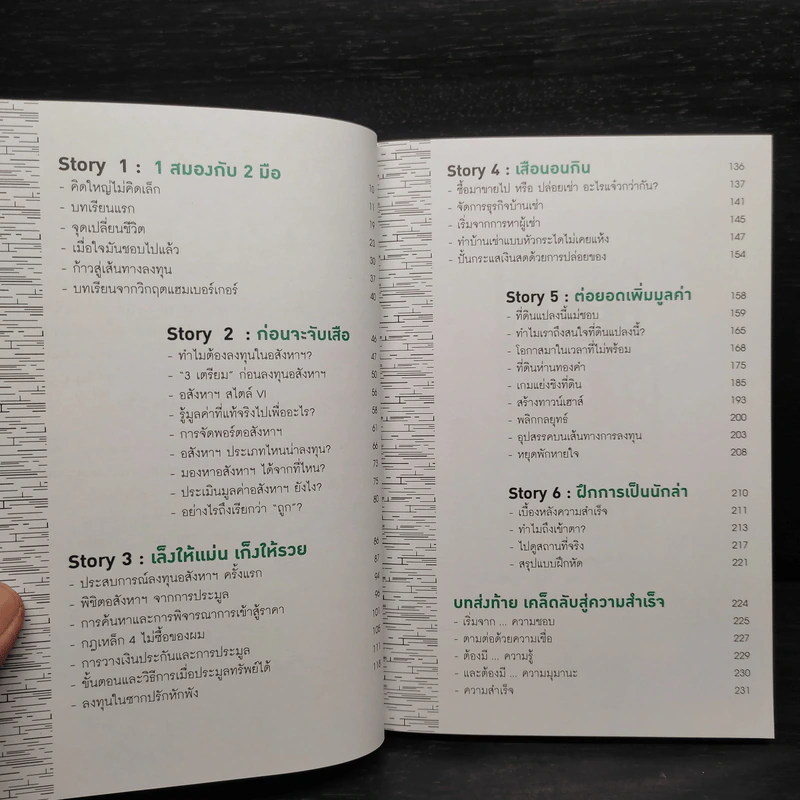 Story 1 : 1 สมองกับ 2 มือ
- คิดใหญ่ไม่คิดเล็ก 10
- บทเรียนแรก 11
- จุดเปลี่ยนชีวิต 19
- เมื่อใจมันชอบไปแล้ว 23
- ก้าวสู่เส้นทางลงทุน 30
- บทเรียนจากวิกฤตแฮมเบอร์เกอร์ 37
40
Story 2 : ก่อนจะจับเสือ 46
- ทำไมต้องลงทุนในอสังหาฯ? 47
- "3 เตรียม" ก่อนลงทุนอสังหาฯ 50
- อสังหาฯ สไตล์ VI 56
- รู้มูลค่าที่แท้จริงไปเพื่ออะไร? 58
- การจัดพอร์ตอสังหาฯ 61
- อสังหาฯ ประเภทไหนน่าลงทุน? 66
- มองหาอสังหาฯ ได้จากที่ไหน? 73
- ประเมินมูลค่าอสังหาฯ ยังไง? 75
- อย่างไรถึงเรียกว่า "ถูก"? 80
Story 3 : เล็งให้แม่น เก็งให้รวย 86
- ประสบการณ์ลงทุนอสังหาฯ ครั้งแรก 87
- พิชิตอสังหาฯ จากการประมูล 94
- การค้นหาและการพิจารณาการเข้าสู้ราคา 96
- กฎเหล็ก 4 ไม่ซื้อของผม 101
- การวางเงินประกันและการประมูล
- ขั้นตอนและวิธีการเมื่อประมูลทรัพย์ได้ 111
- ลงทุนในซากปรักหักพัง 118
Story 4 : เสือนอนกิน 136
- ซื้อมาขายไป หรือ ปล่อยเช่า อะไรแจ๋วกว่ากัน? 137
- จัดการธุรกิจบ้านเช่า 141
- เริ่มจากการหาผู้เช่า 145
- ทำบ้านเช่าแบบหัวกระไดไม่เคยแห้ง 147
- ปั้นกระแสเงินสดด้วยการปล่อยของ 154
Story 5 : ต่อยอดเพิ่มมูลค่า 158
- ที่ดินแปลงนี้แม่ชอบ 159
- ทำไมเราถึงสนใจที่ดินแปลงนี้? 165
- โอกาสมาในเวลาที่ไม่พร้อม 168
- ที่ดินห่านทองคำ 175
- เกมแย่งชิงที่ดิน 185
- สร้างทาวน์เฮาส์ 193
- พลิกกลยุทธ์ 200
- อุปสรรคบนเส้นทางการลงทุน 203
- หยุดพักหายใจ 208
Story 6 : ฝึกการเป็นนักล่า 210
- เบื้องหลังความสำเร็จ 211
- ทำไมถึงเข้าตา? 213
- ไปดูสถานที่จริง 217
- สรุปแบบฝึกหัด 221
บทส่งท้าย เคล็ดลับสู่ความสำเร็จ 224
- เริ่มจาก ... ความชอบ 225
- ตามต่อด้วยความเชื่อ 227
- ต้องมี ... ความรู้ 229
- และต้องมี ... ความมุมานะ 230
- ความสำเร็จ 231